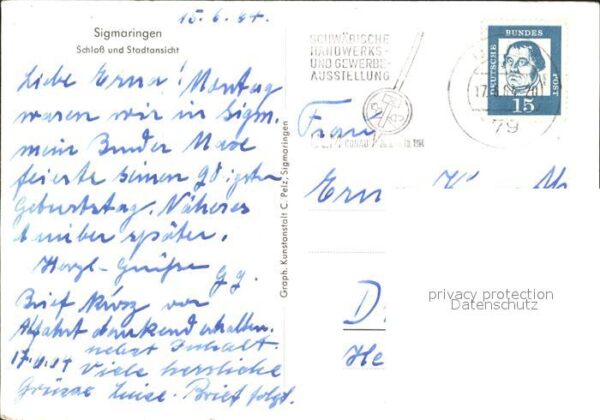 15.6.64.
Sigmaringen
Schloß und Stadtansicht
Liebe Erna! Montag
waren wir in Sigm.
mein Bruder Max
feierte seinen 90.igsten
Geburtstag. Näheres
darüber später.
Herzl. Grüße
Brief kurz vor
Abfahrt dankend erhalten.
nebst Inhalt.
Viele herzliche
Grüsse Luise. Brief folgt.
Graph. Kunstanstalt C. Pelz, Sigmaringen
SCHWÄBISCHE
HANDWERKS-
UND GEWERBE-
AUSSTELLUNG
DONAU
DEUTSCHE BUNDES POST
15
79
Frau
privacy protection
Datenschutz